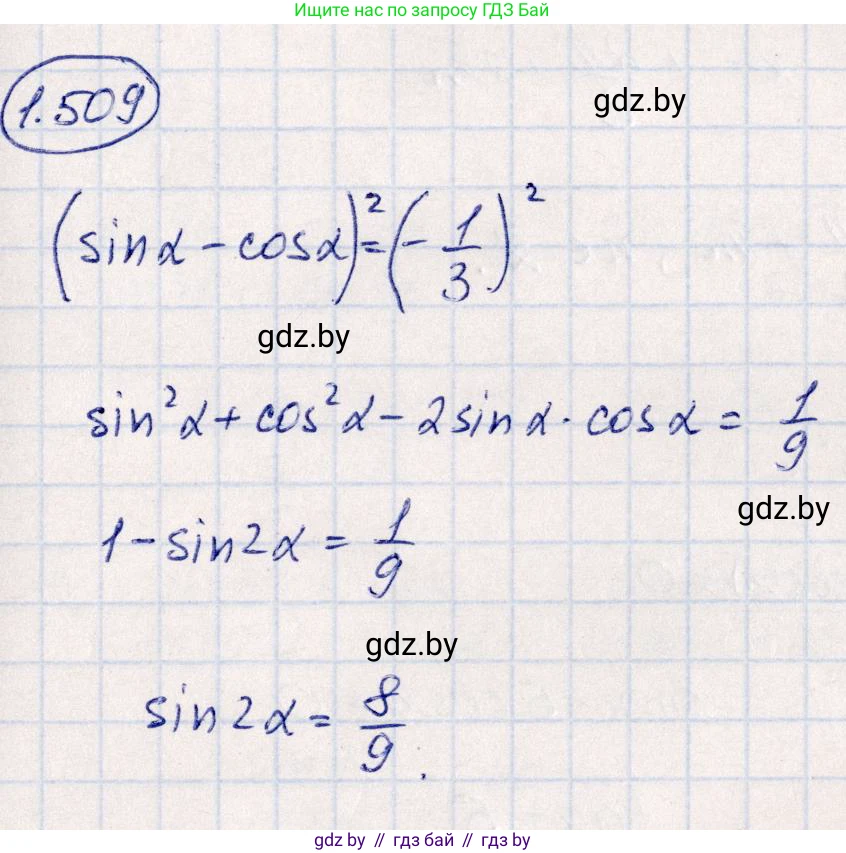 Ищите нас по запросу ГДЗ Бай
1.509
gdz.by
(sinα - cosα)² = (-1/3)²
gdz.by
sin²α + cos²α - 2sinα · cosα = 1/9
gdz.by
1 - sin2α = 1/9
gdz.by
sin2α = 8/9.
gdz.by // гдз бай // gdz.by